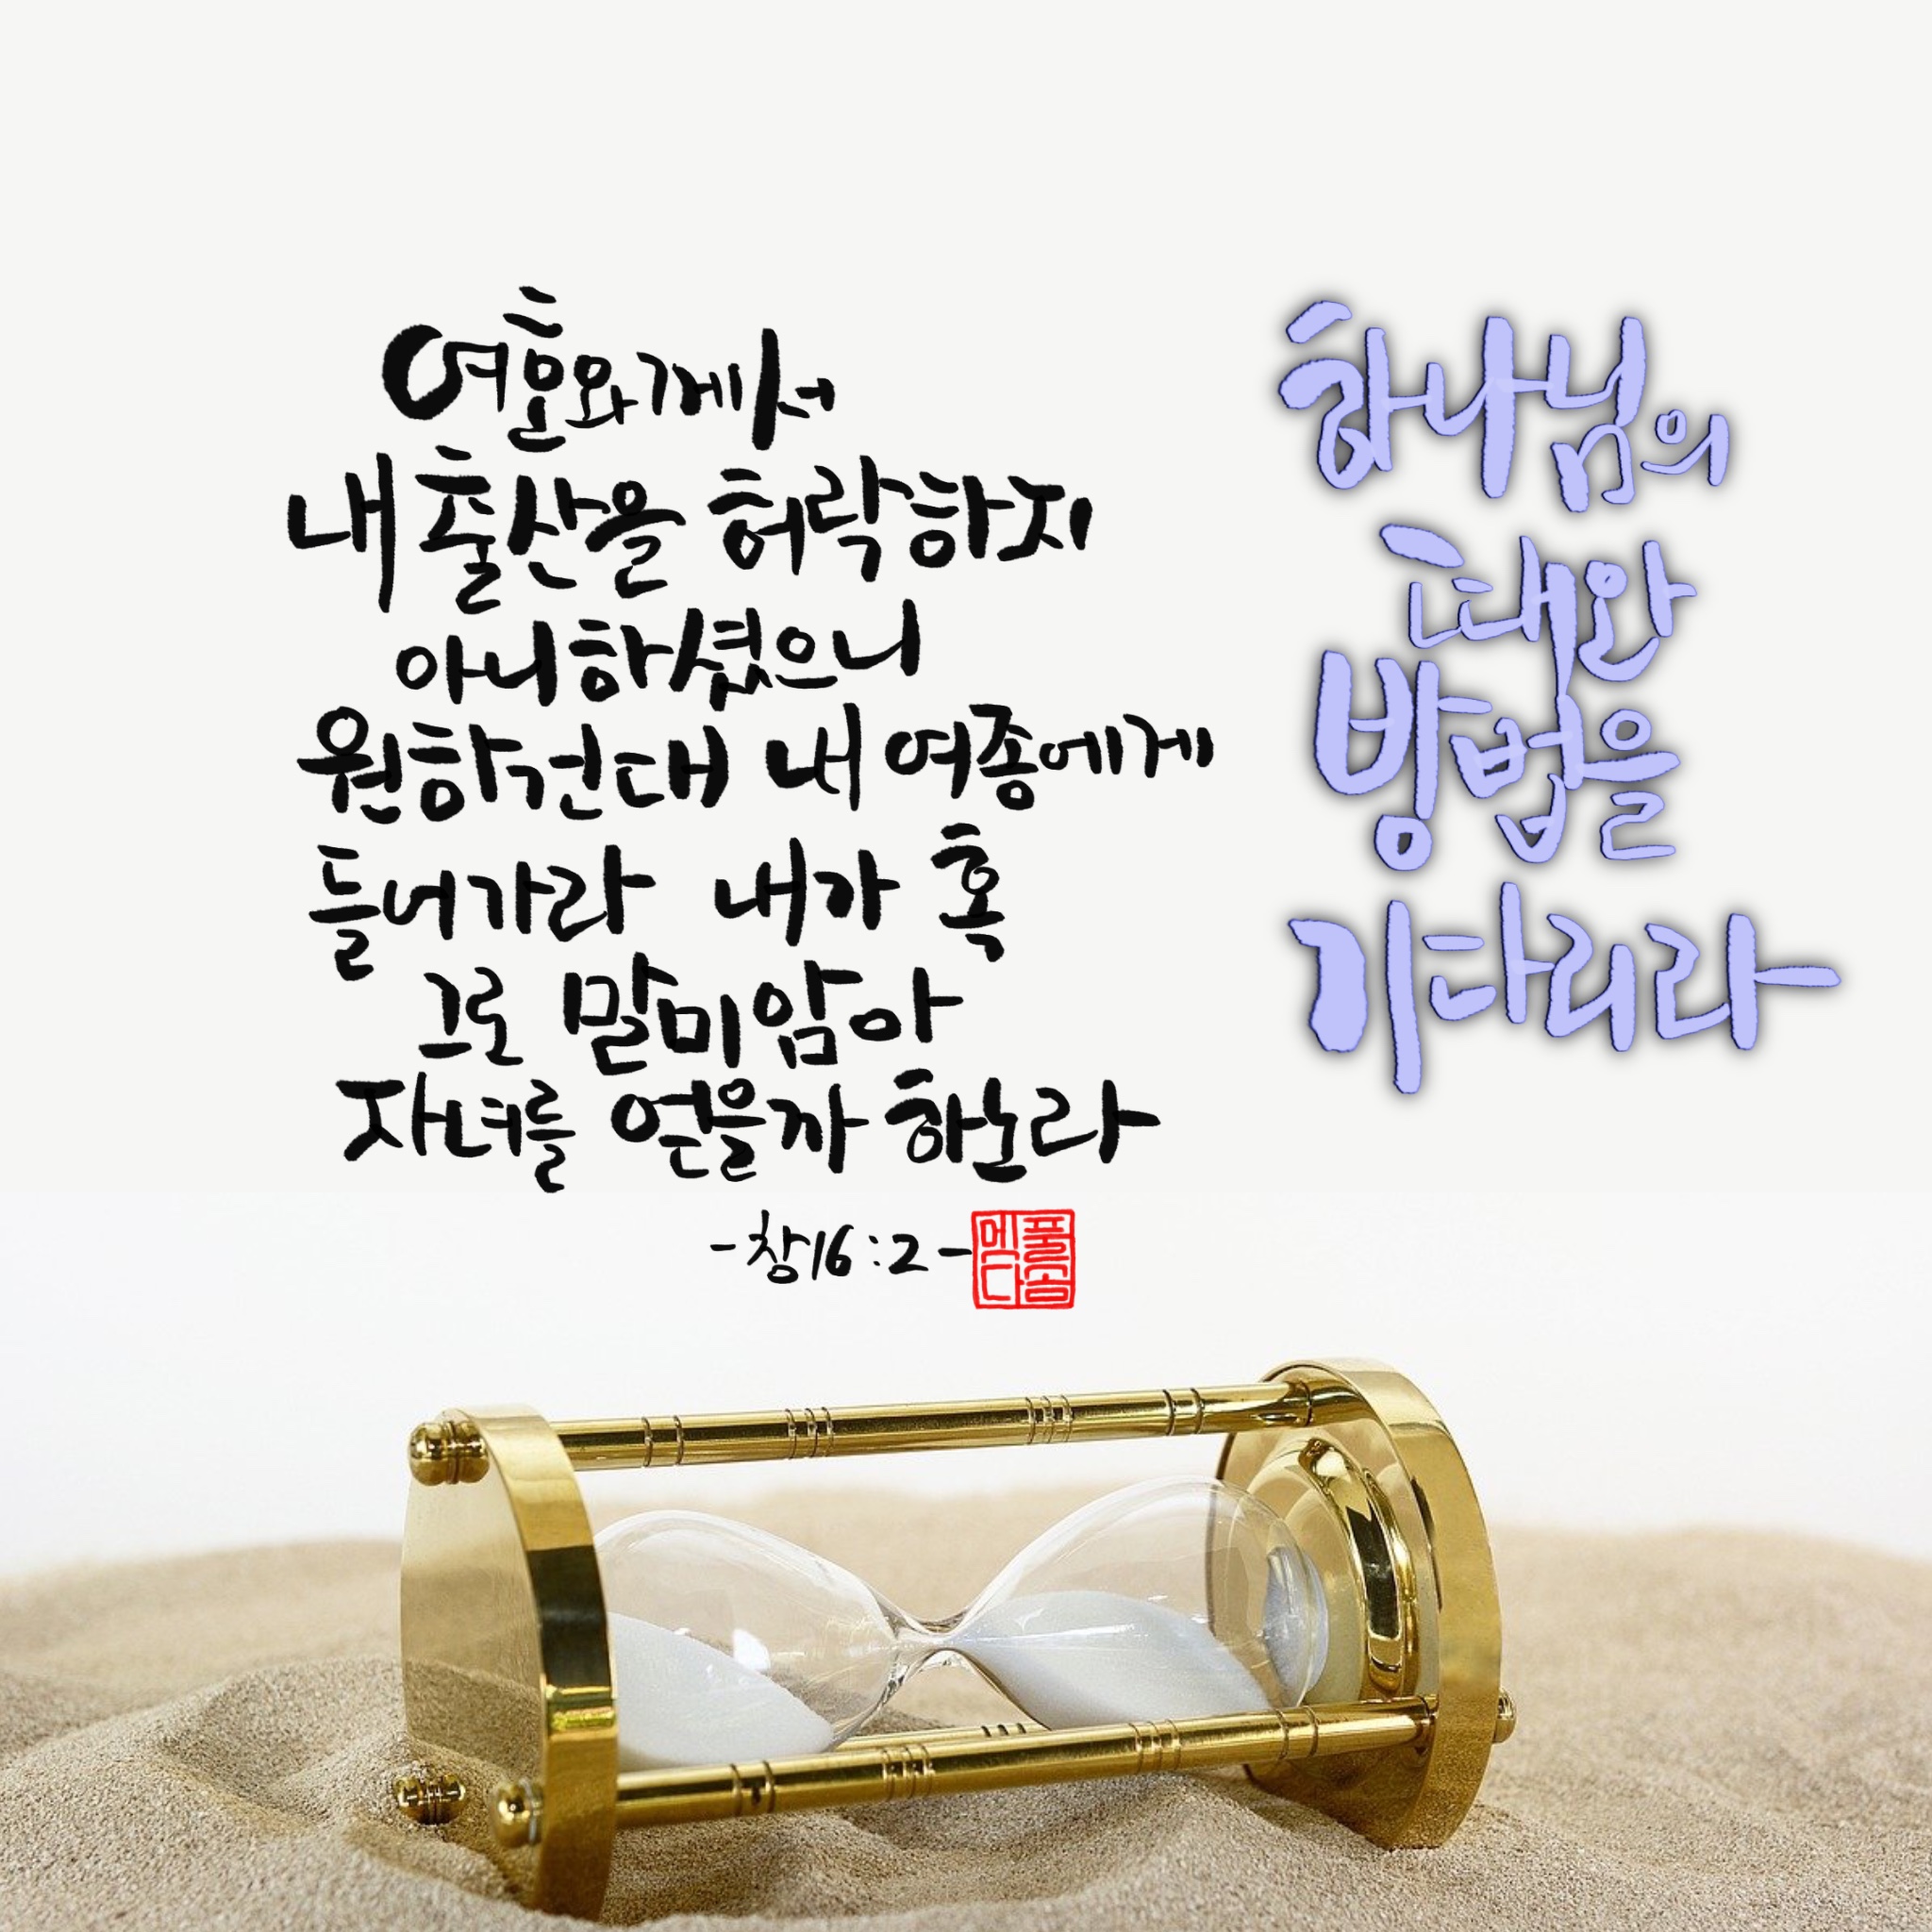 여호와께서
내 출산을 허락하지
아니하셨으니
원하건대 내 여종에게
들어가라 내가 혹
그로 말미암아
자녀를 얻을까 하노라
-창16:2-
하나님의
때와
방법을
기다리라